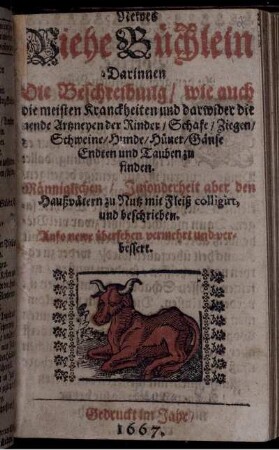 Newes
Viehe Büchlein
Darinnen
Die Beschreibung / wie auch
die meisten Kranckheiten und darwider die
nende Artzneyen der Rinder / Schafe / Ziegen /
Schweine / Hunde / Hüner / Gänse
Endten und Tauben zu
finden.
Männiglichen / Insonderheit aber den
Haußvätern zu Nutz mit Fleiß colligirt,
und beschrieben.
Aufs newe übersehen vermehrt und ver-
bessert.
Gedruckt im Jahr /
1667.